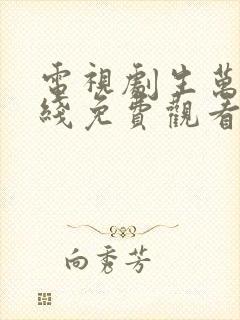 電視劇生萬
綫免費觀看
向秀芳